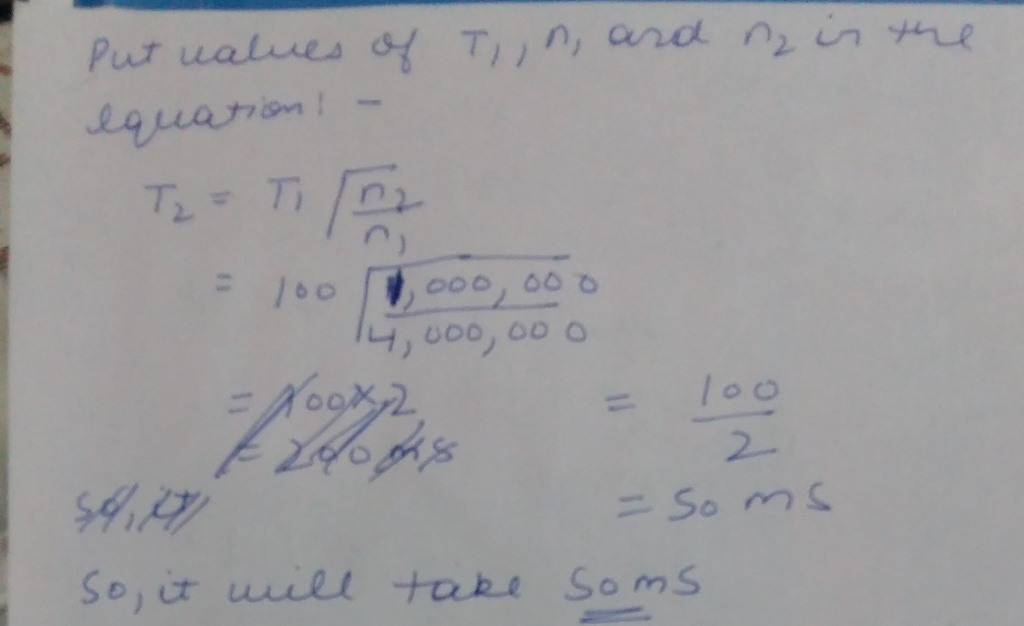 Put values of T₁, n₁ and n₂ in the
equation:-
T₂ = T₁ √(n₂/n₁)
= 100 √(1,000,000/4,000,000)
= 100×2 = 100/2
= 200 ms
= 50 ms
So, it
So, it will take 50ms